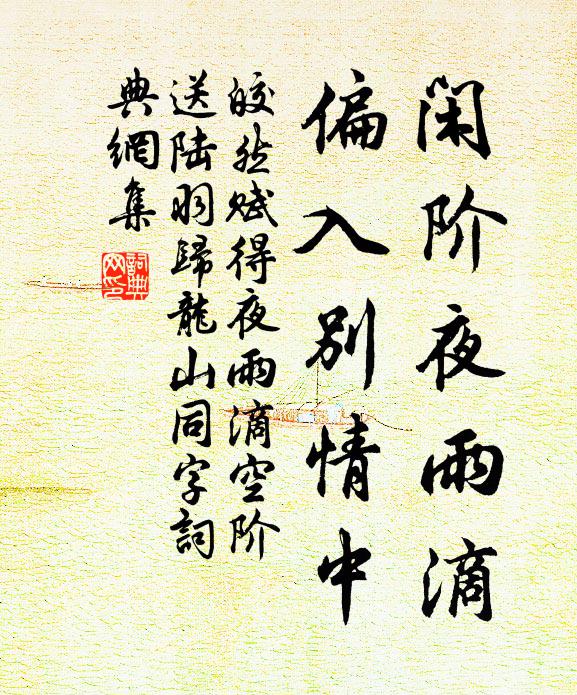 闲阶夜雨滴
偏入别情中
皎然赋得夜雨滴空阶
送陆羽歸龍山同字詞
典網集
詞典
网印